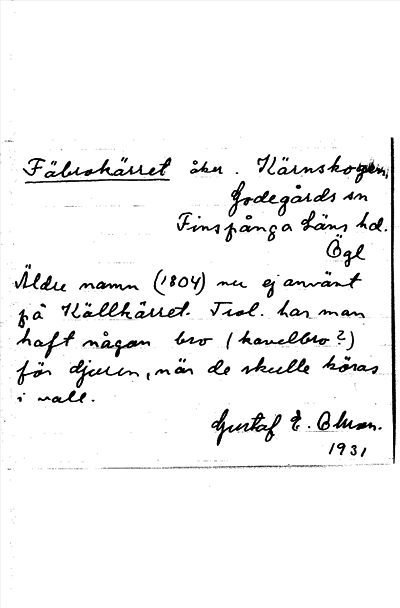 Fäbrokärret åker. Kärnskogen,
Godegårds sn
Finspånga Läns hd.
Ögl
Äldre namn (1804) nu ej använt
på Källkärret. Trol. har man
haft någon bro (kavelbro?)
för djuren, när de skulle köras
i vall.
Gustaf E.
1931